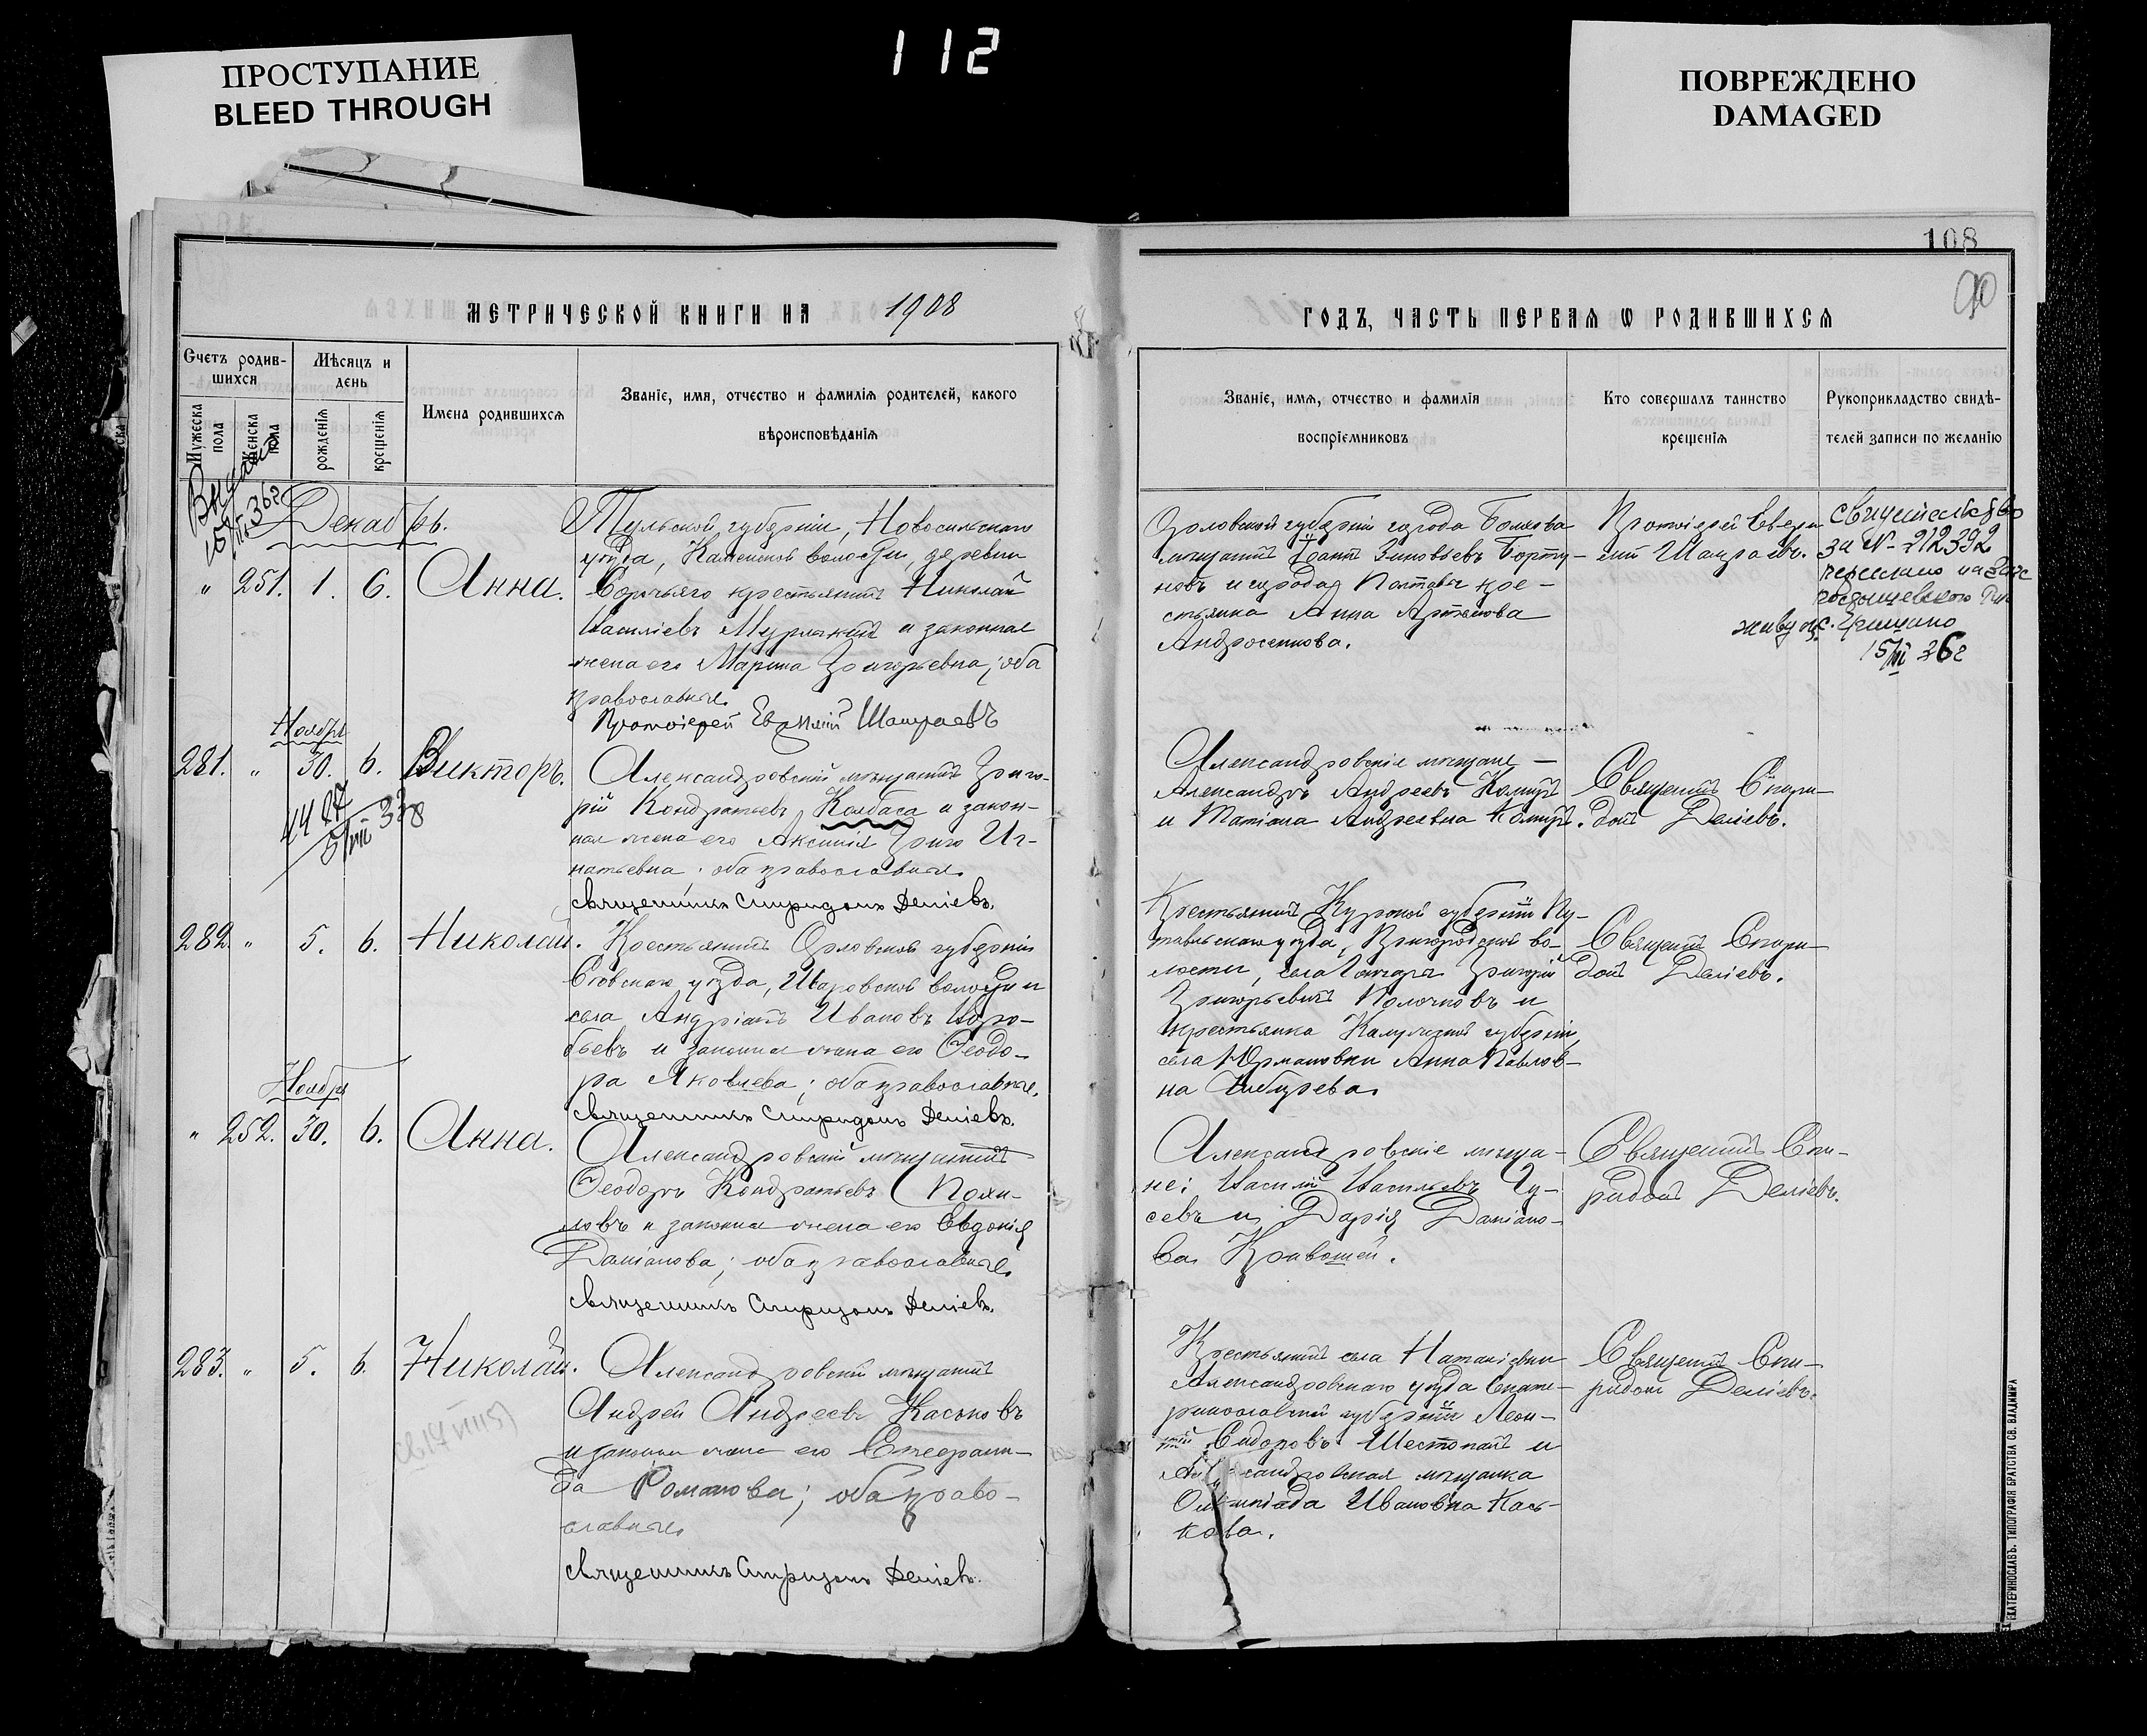 112
ПРОСТУПАНИЕ
BLEED THROUGH
ПОВРЕЖДЕНО
DAMAGED
108
90
МЕТРИЧЕСКОЙ КНИГИ НА 1908
ГОДЪ, ЧАСТЬ ПЕРВАЯ Ѡ РОДИВШИХСѦ
Счетъ родив-
шихся
Мужеска пола
Женска пола
Мѣсяцъ и
день
рожденія
крещенія
Имена родившихся
Званіе, имя, отчество и фамилія родителей, какого
вѣроисповѣданія
Званіе, имя, отчество и фамилія
воспріемниковъ
Кто совершалъ таинство
крещенія
Рукоприкладство свидѣ-
телей записи по желанію
15/III 36г
Декабрь.
" 251. 1. 6. Анна.
Тульской губерніи, Новосильскаго
уѣзда, Каменской волости, деревни
крестьянинъ Николай
Василіевъ и законная
жена его Марина Григорьевна; оба
православные.
Протоіерей Евѳимій
Орловской губерніи города Болхова
мѣщанинъ Іоаннъ Зиновьевъ Борту-
новъ и города Полтавы кре-
стьянка Анна Артемова
Андросенкова.
Протоіерей Евѳи-
мій
Свидѣтельство
за № 212392
переслано на
живу с. Гришино
15/III 36г
Ноябрь
281. " 30. 6. Викторъ.
5/VIII 38
Александровскій мѣщанинъ Григо-
рій Кондратьевъ Колбаса и закон-
ная жена его Аксинія Иг-
натьевна; оба православные.
Священникъ Спиридонъ Деліевъ.
Александровскіе мѣщане —
Александръ Андреевъ
и Татіана Андреевна
Священникъ Спири-
донъ Деліевъ.
282. " 5. 6. Николай.
Крестьянинъ Орловской губерніи
Сѣвскаго уѣзда, волости и
села Андріанъ Ивановъ Воро-
бьевъ и законная жена его Ѳеодо-
ра Яковлева; оба православные.
Священникъ Спиридонъ Деліевъ.
Крестьянинъ Курской губерніи Пу-
тивльскаго уѣзда, Пригородской во-
лости, села Григорій
Григорьевичъ и
крестьянка Калужской губерніи,
села Анна Павлов-
на
Священникъ Спири-
донъ Деліевъ.
Ноябрь
" 252. 30. 6. Анна.
Александровскій мѣщанинъ
Ѳеодоръ Кондратьевъ
и законная жена его Евдокія
Даміанова; оба православные.
Священникъ Спиридонъ Деліевъ.
Александровскіе мѣща-
не: Василій Васильевъ Гу-
севъ и Дарія Даміано-
ва Кривошей.
Священникъ Спи-
ридонъ Деліевъ.
283. " 5. 6. Николай.
Александровскій мѣщанинъ
Андрей Андреевъ Каськовъ
и законная жена его Стефани-
да Романова; оба право-
славные.
Священникъ Спиридонъ Деліевъ.
Крестьянинъ села Наталіевки
Александровскаго уѣзда Екате-
ринославской губерніи Леон-
тій Сидоровъ Шестопалъ и
Александровская мѣщанка
Олимпіада Ивановна Кась-
кова.
Священникъ Спи-
ридонъ Деліевъ.
ЕКАТЕРИНОСЛАВЪ. ТИПОГРАФІЯ БРАТСТВА СВ. ВЛАДИМІРА